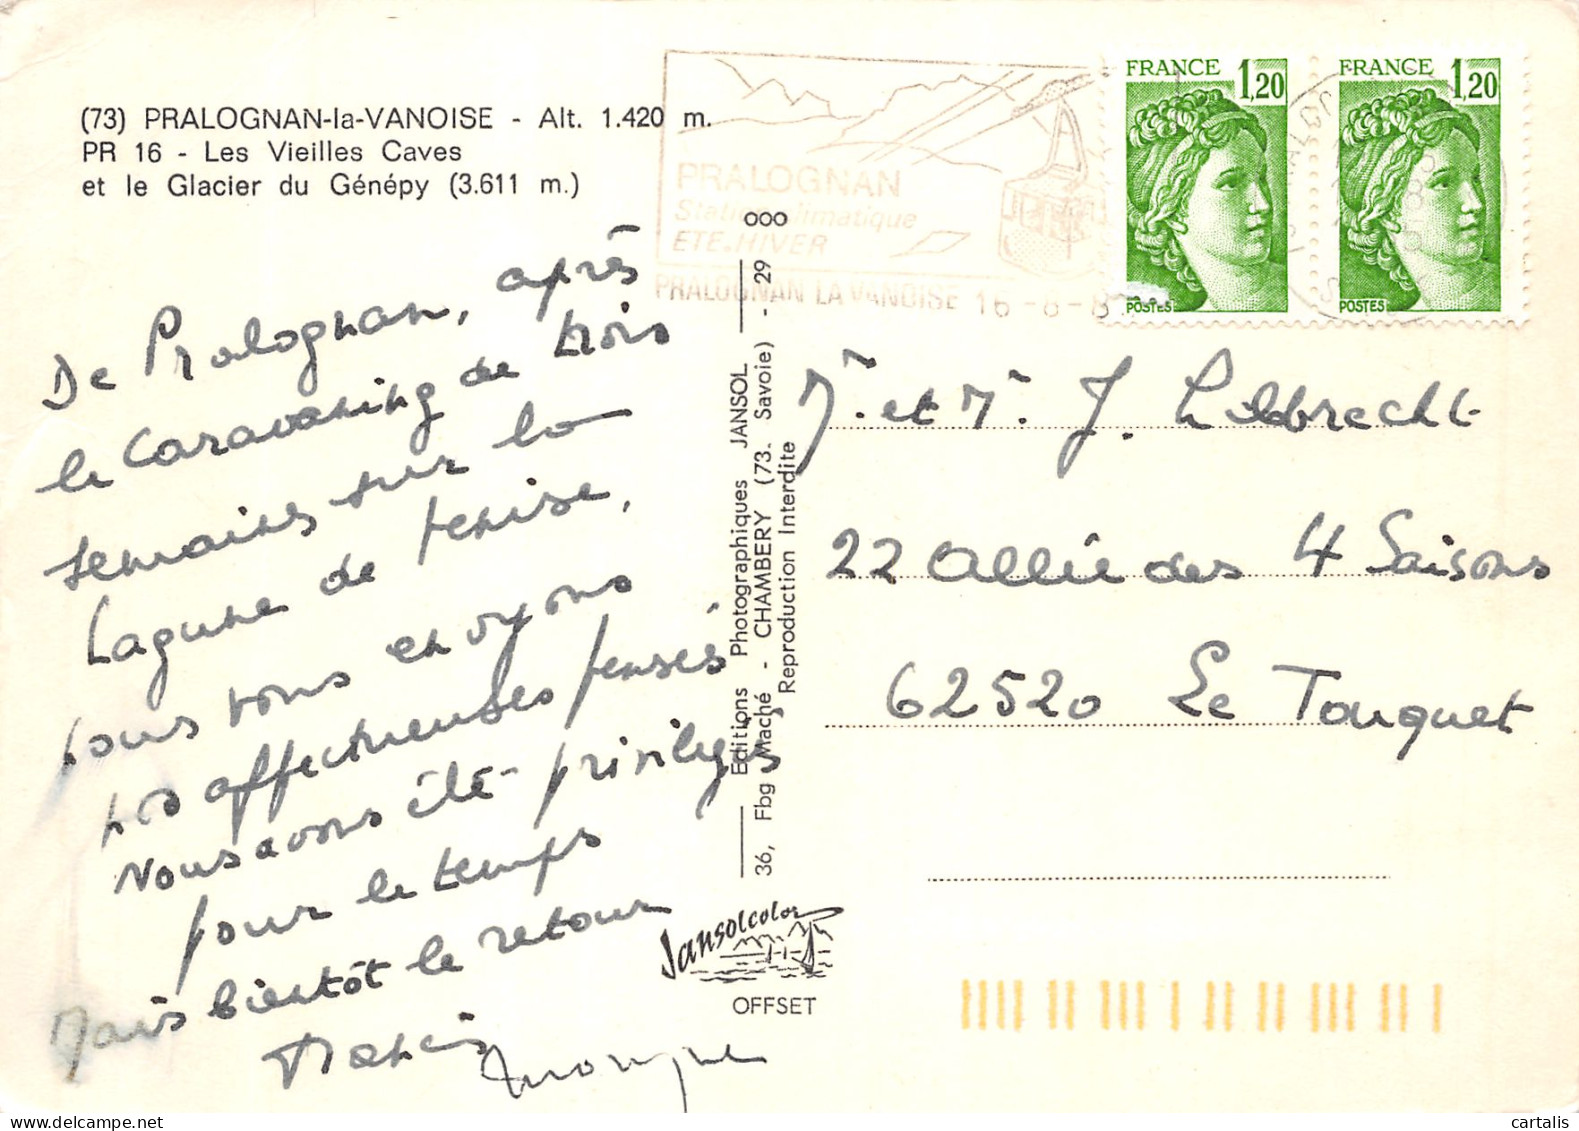 (73) PRALOGNAN-la-VANOISE - Alt. 1.420 m.
PR 16 - Les Vieilles Caves
et le Glacier du Génépy (3.611 m.)
De Pralognan, après
le caravaning de trois
semaines sur la
Lagune de Venise,
nous vous envoyons
nos affectueuses pensés
Nous avons été privilégiés
pour le temps
Mais bientôt le retour
PRALOGNAN
Station climatique
ETE-HIVER
PRALOGNAN LA VANOISE 16-8-8
FRANCE 1,20
POSTES
FRANCE 1,20
POSTES
000
Editions Photographiques JANSOL
36, Fbg Maché - CHAMBERY (73. Savoie) - 29
Reproduction Interdite
Jansolcolor
OFFSET
Mr et Mr J.
22 Allée des 4 Saisons
62520 Le Touquet
cartalis